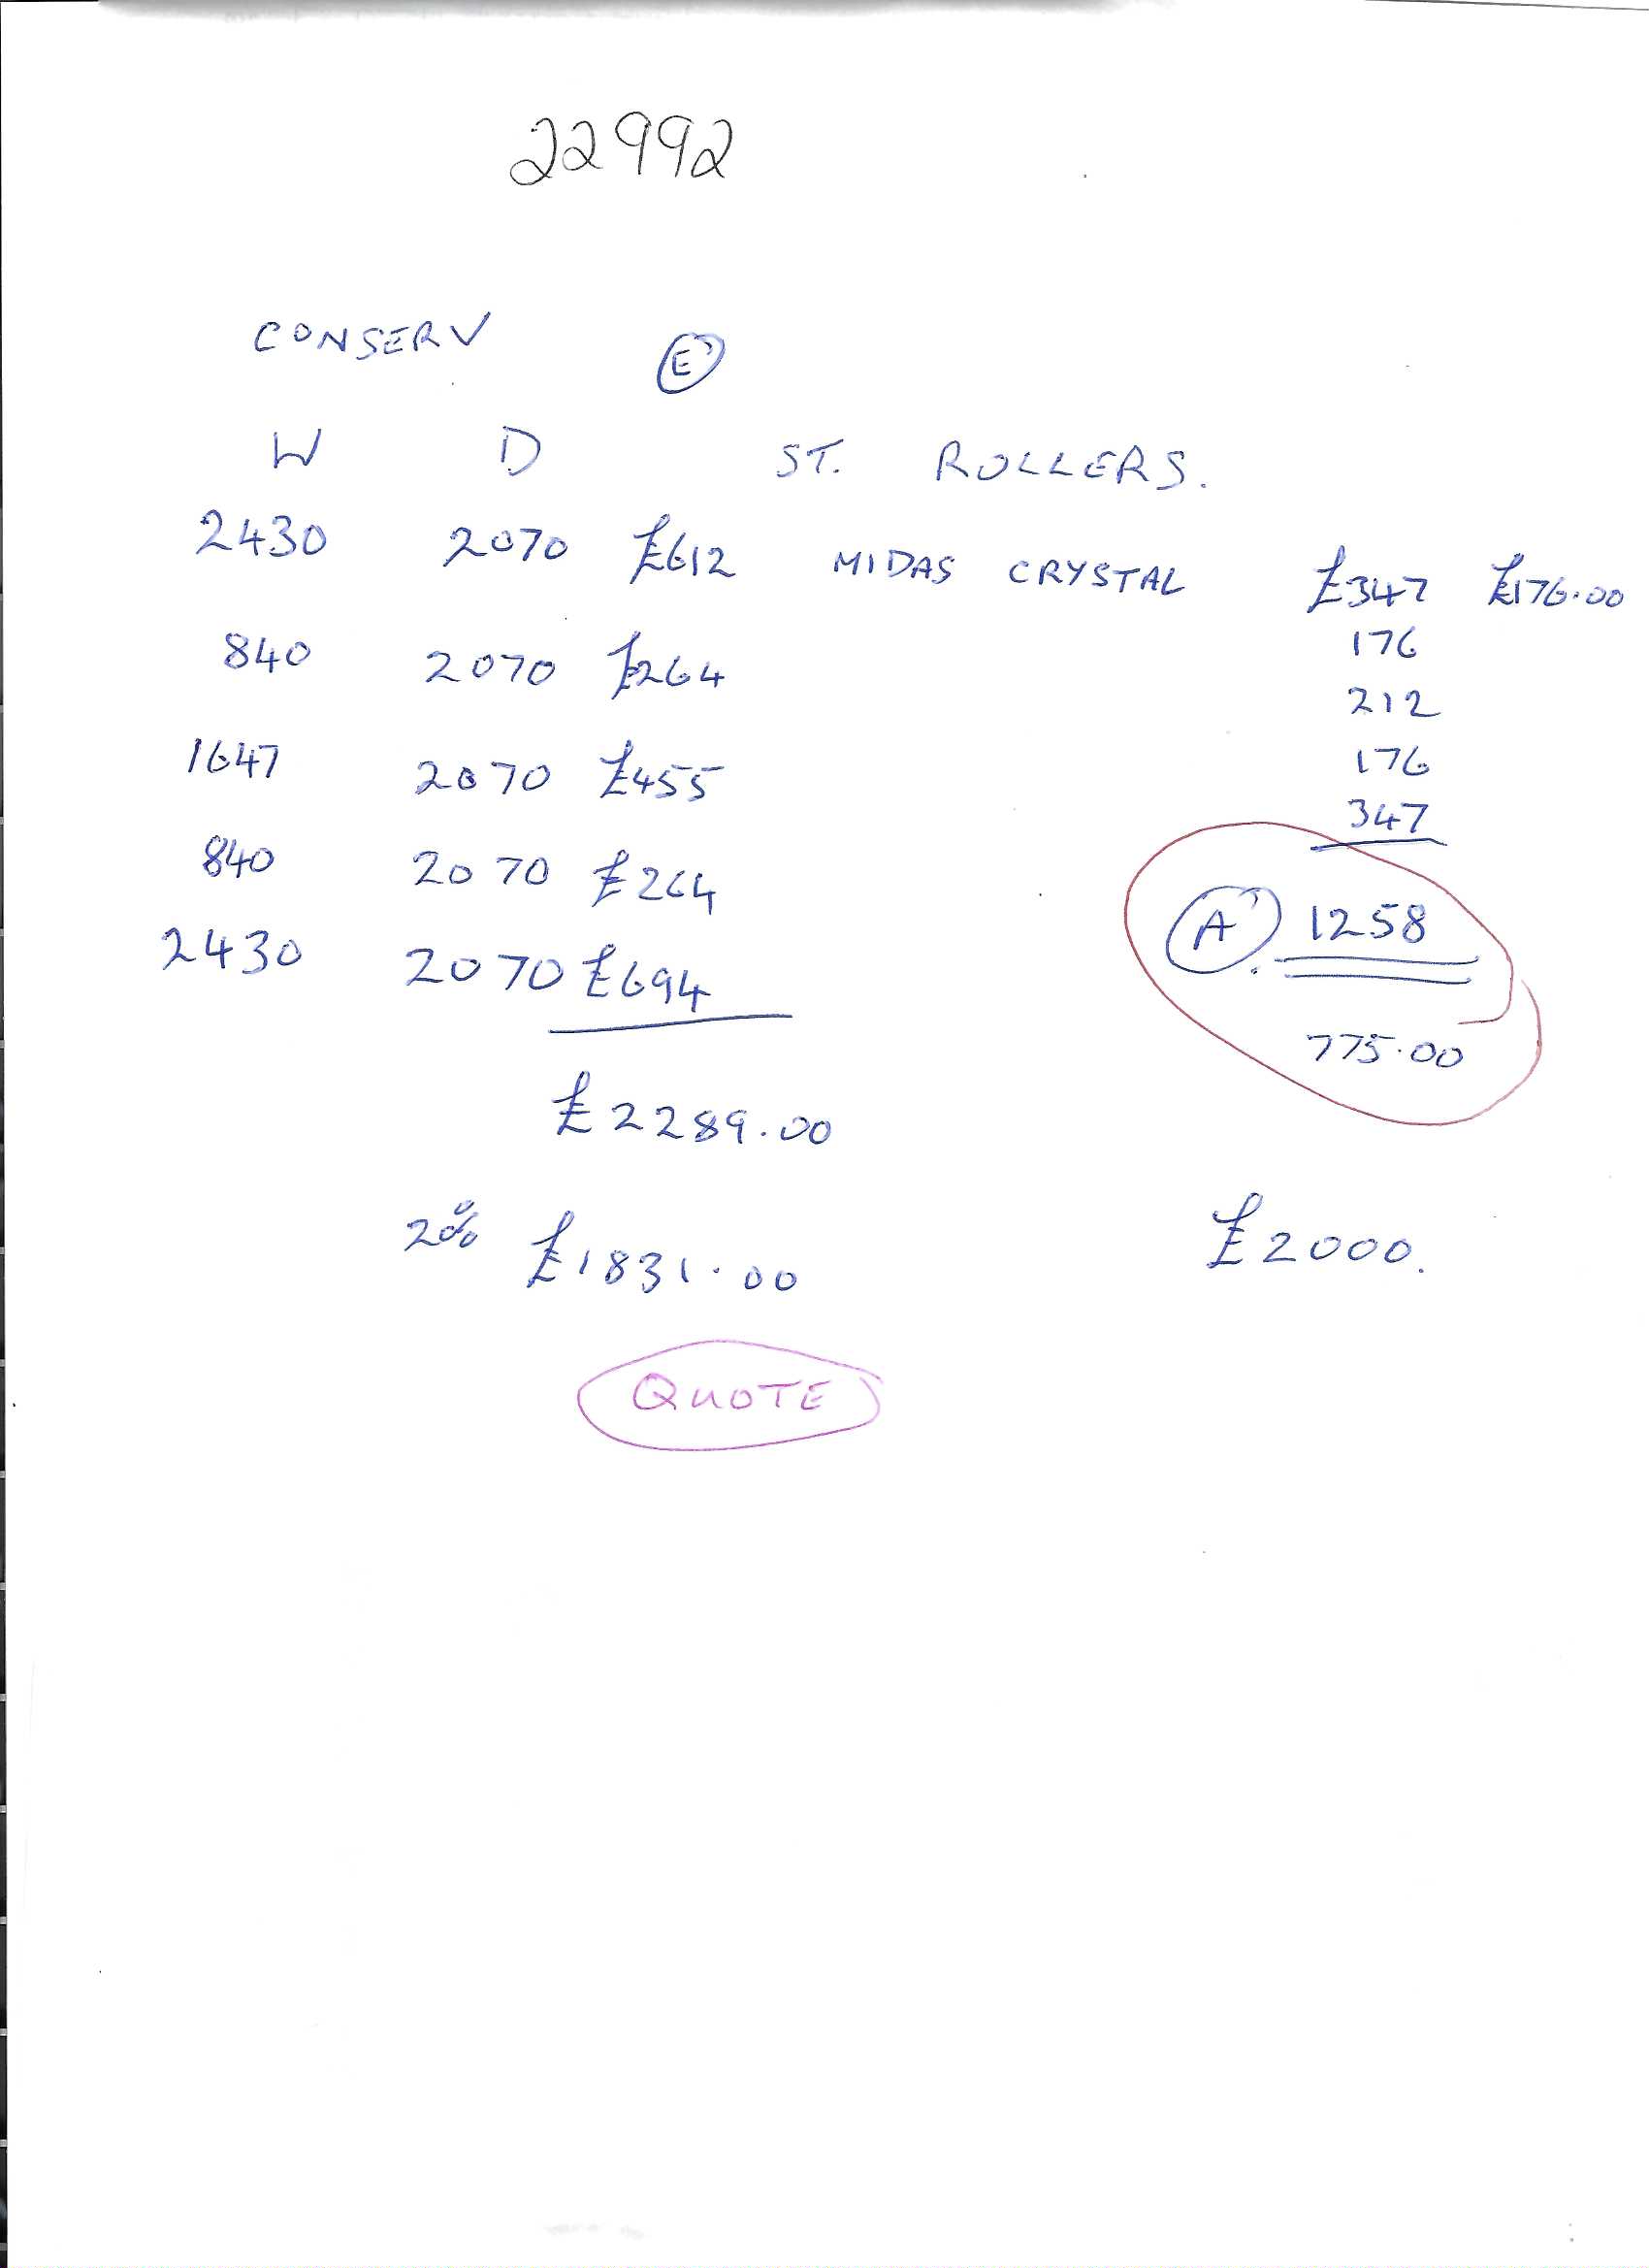 22992
CONSERV E
W D ST. ROLLERS.
2430 2070 £612 MIDAS CRYSTAL £347 £176.00
840 2070 £264 176
212
1647 2070 £455 176
347
840 2070 £264
A 1258
2430 2070 £694
775.00
£2289.00
20% £1831.00 £2000.
QUOTE